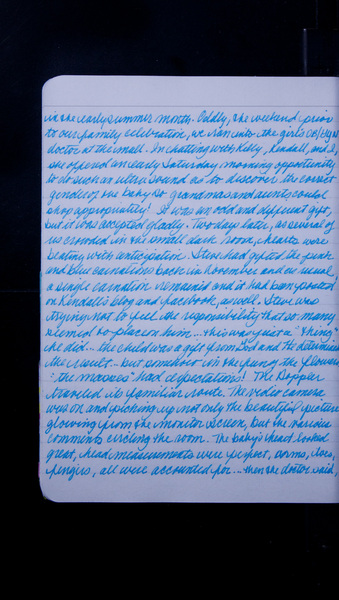 in the early summer month. Oddly, the weekend prior
to our family celebration, we ran into the girls OB/GYN
doctor at the mall. In chatting with Kelly, Kendall, and I,
she offered an early Saturday morning opportunity
to do such an ultra sound as to discover the correct
gender of the baby so grandmas and aunts could
shop appropriately! It was an odd and different gift,
but it was accepted gladly. Two days later, as several of
us crowded in the small dark room, hearts were
beating with anticipation. Steve had gifted the pink
and blue carnations back in November and as usual
a single carnation remained and it had been posted
on Kendall's blog and facebook, as well. Steve was
trying not to feel the responsibility that so many
seemed to place on him... this was just a "thing"
he did... the child was a gift from God and He determined
the result... but somehow in the the flowers
: the masses had expectations! The Dopper
traveled its familiar route. The video camera
was on and picking up not only the beautiful picture
glowing from the monitor screen, but the various
comments circling the room. The baby's heart looked
great, head measurements were perfect, arms, toes,
fingers, all were accounted for... then the doctor said,